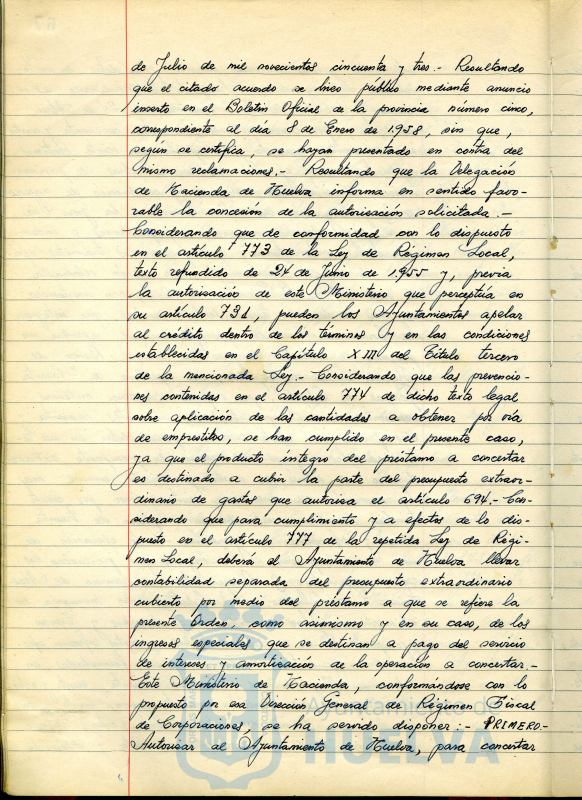 de Julio de mil novecientos cincuenta y tres.- Resultando
que el citado acuerdo se hizo público mediante anuncio
inserto en el Boletín Oficial de la provincia número cinco,
correspondiente al día 8 de Enero de 1.958, sin que,
según se certifica, se hayan presentado en contra del
mismo reclamaciones.- Resultando que la Delegación
de Hacienda de Huelva informa en sentido favo-
rable la concesión de la autorización solicitada.-
Considerando que de conformidad con lo dispuesto
en el artículo 773 de la Ley de Régimen Local,
texto refundido de 24 de Junio de 1.955 y, previa
la autorización de este Ministerio que perceptúa en
su artículo 731, pueden los Ayuntamientos apelar
al crédito dentro de los términos y en las condiciones
establecidas en el Capítulo XIII del Título tercero
de la mencionada Ley.- Considerando que las prevencio-
nes contenidas en el artículo 774 de dicho texto legal
sobre aplicación de las cantidades a obtener por vía
de emprestitos, se han cumplido en el presente caso,
ya que el producto íntegro del préstamo a concertar
es destinado a cubrir la parte del presupuesto extraor-
dinario de gastos que autoriza el artículo 694.- Con-
siderando que para cumplimiento y a efectos de lo dis-
puesto en el artículo 777 de la repetida Ley de Régi-
men Local, deberá el Ayuntamiento de Huelva llevar
contabilidad separada del presupuesto extraordinario
cubierto por medio del préstamo a que se refiere la
presente Orden, como asimismo y en su caso, de los
ingresos especiales que se destinan a pago del servicio
de intereses y amortización de la operación a concertar.-
Este Ministerio de Hacienda, conformándose con lo
propuesto por esa Dirección General de Régimen Fiscal
de Corporaciones, se ha servido disponer:- PRIMERO.-
Autorizar al Ayuntamiento de Huelva, para concertar
HUELVA